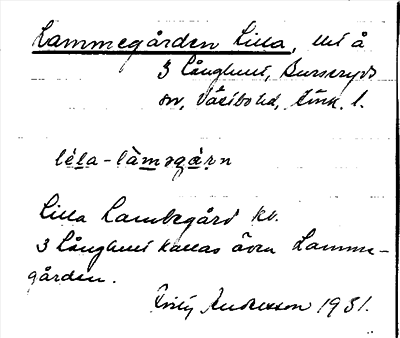 Lammegården Lilla, del å
3 Långhult, Burseryds
sn, Västbo hd, Jönk. l.
lèla-làmægæ̀ṛn
Lilla Lambegård kv.
3 Långhult kallas även Lamme-
gården.
Andersson 1931.